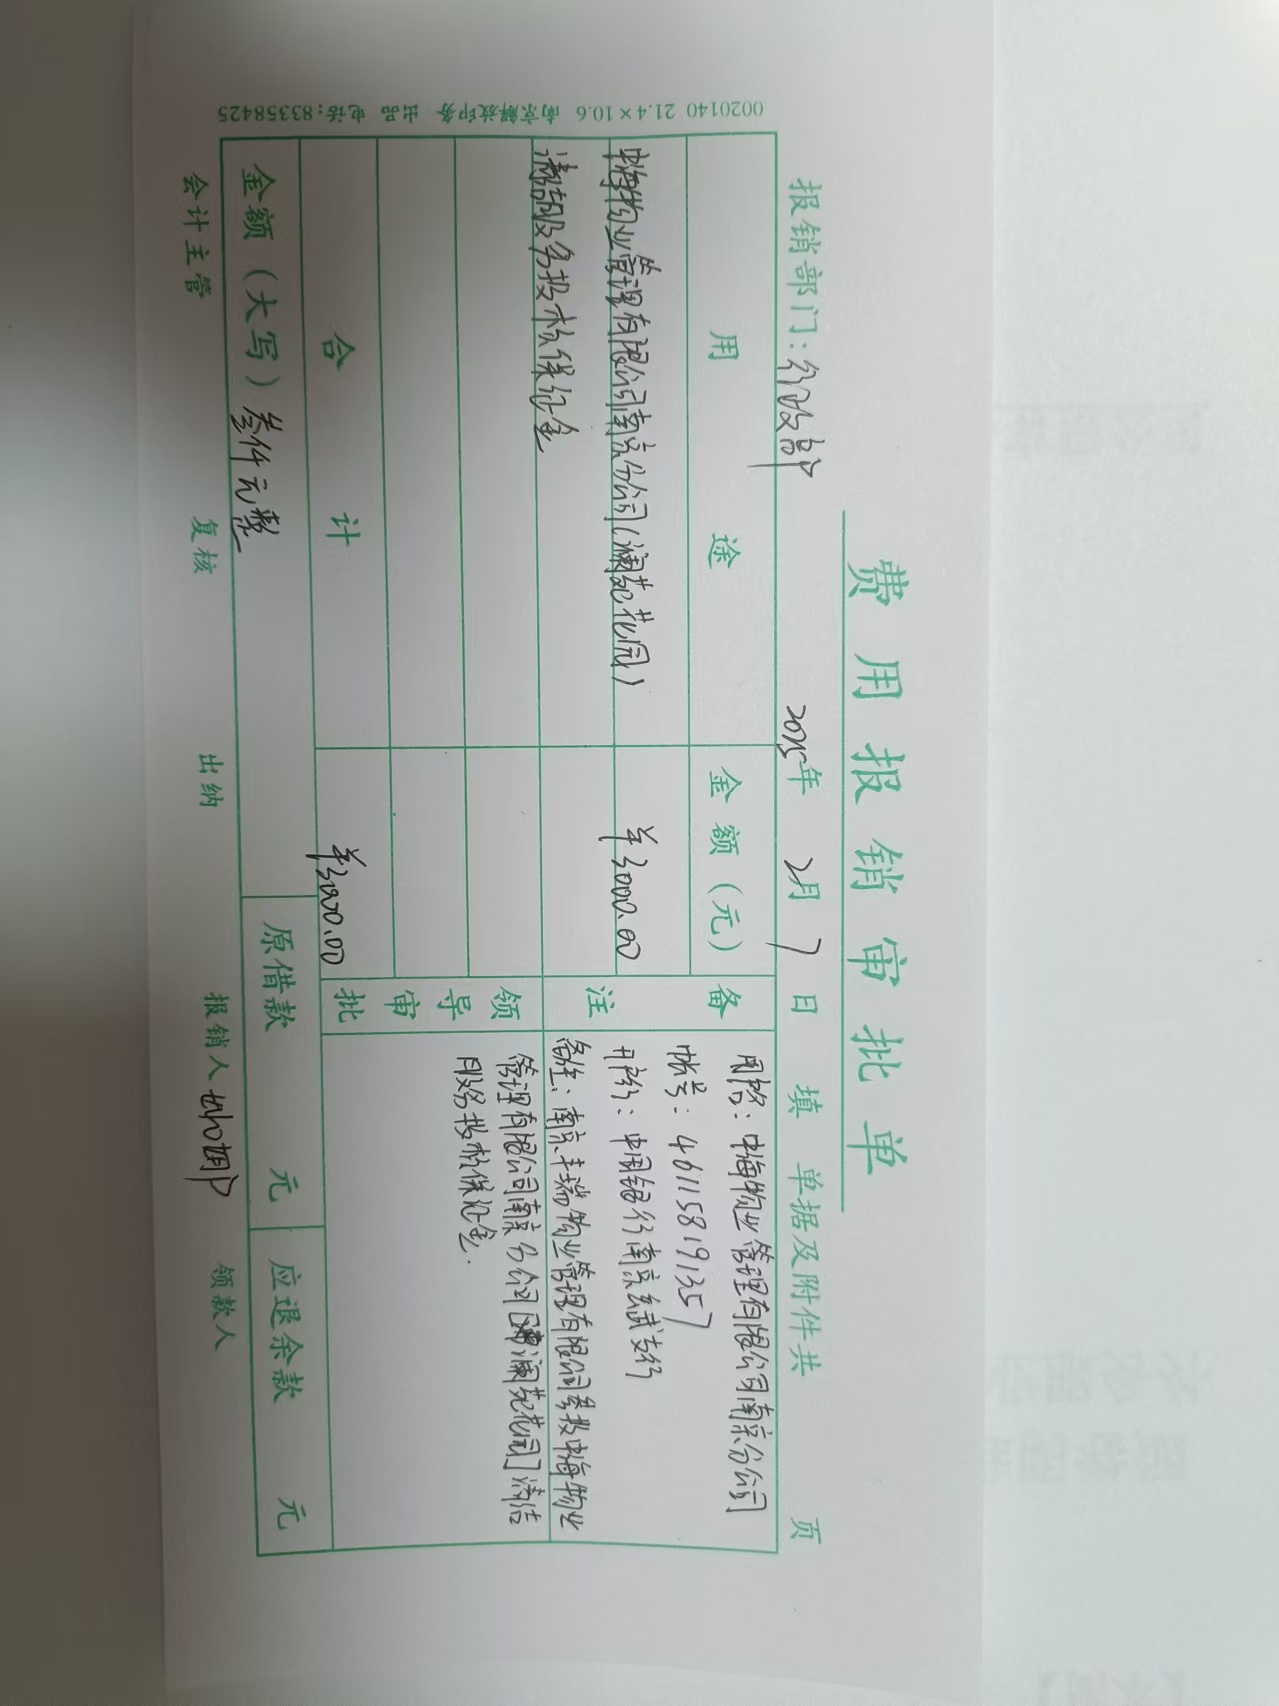 费用报销审批单
报销部门：行政部 2025年 2月 7日填 单据及附件共 页
用途 金额(元) 备注
中海物业管理有限公司南京分公司(澜苑花园) ¥3000.00
清洁服务投标保证金
户名：中海物业管理有限公司南京分公司
帐号：461158191357
开户行：中国银行南京玄武支行
备注：南京丰瑞物业管理有限公司参投中海物业
管理有限公司南京分公司[澜苑花园]清洁
服务投标保证金.
领导审批
合计 ¥3000.00
金额(大写) 叁仟元整 原借款 元 应退余款 元
会计主管 复核 出纳 报销人 领款人
0020140 21.4×10.6 南京解放印务 出品 电话:83358425